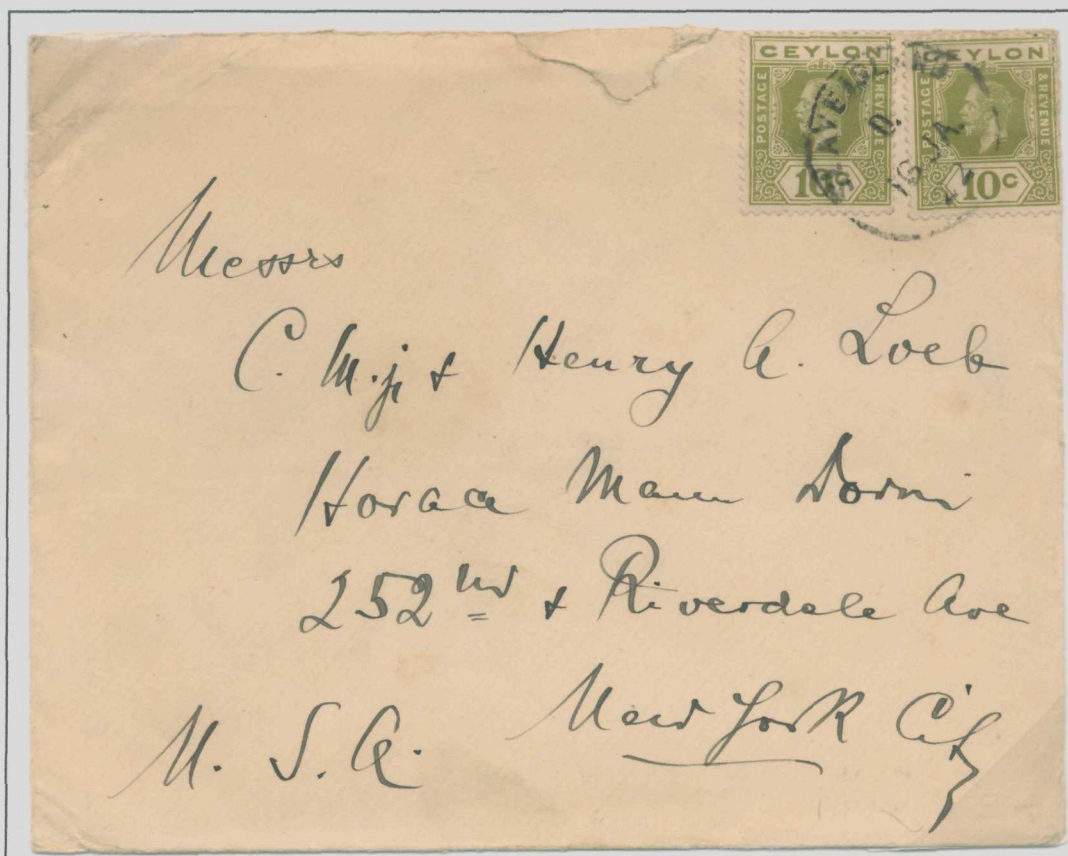 CEYLON CEYLON
POSTAGE & REVENUE POSTAGE & REVENUE
10c 10c
16 JA
Messrs
C. M. jr & Henry A. Loeb
Horace Mann Dorm
252nd & Riverdale Ave
New York City
U. S. A.